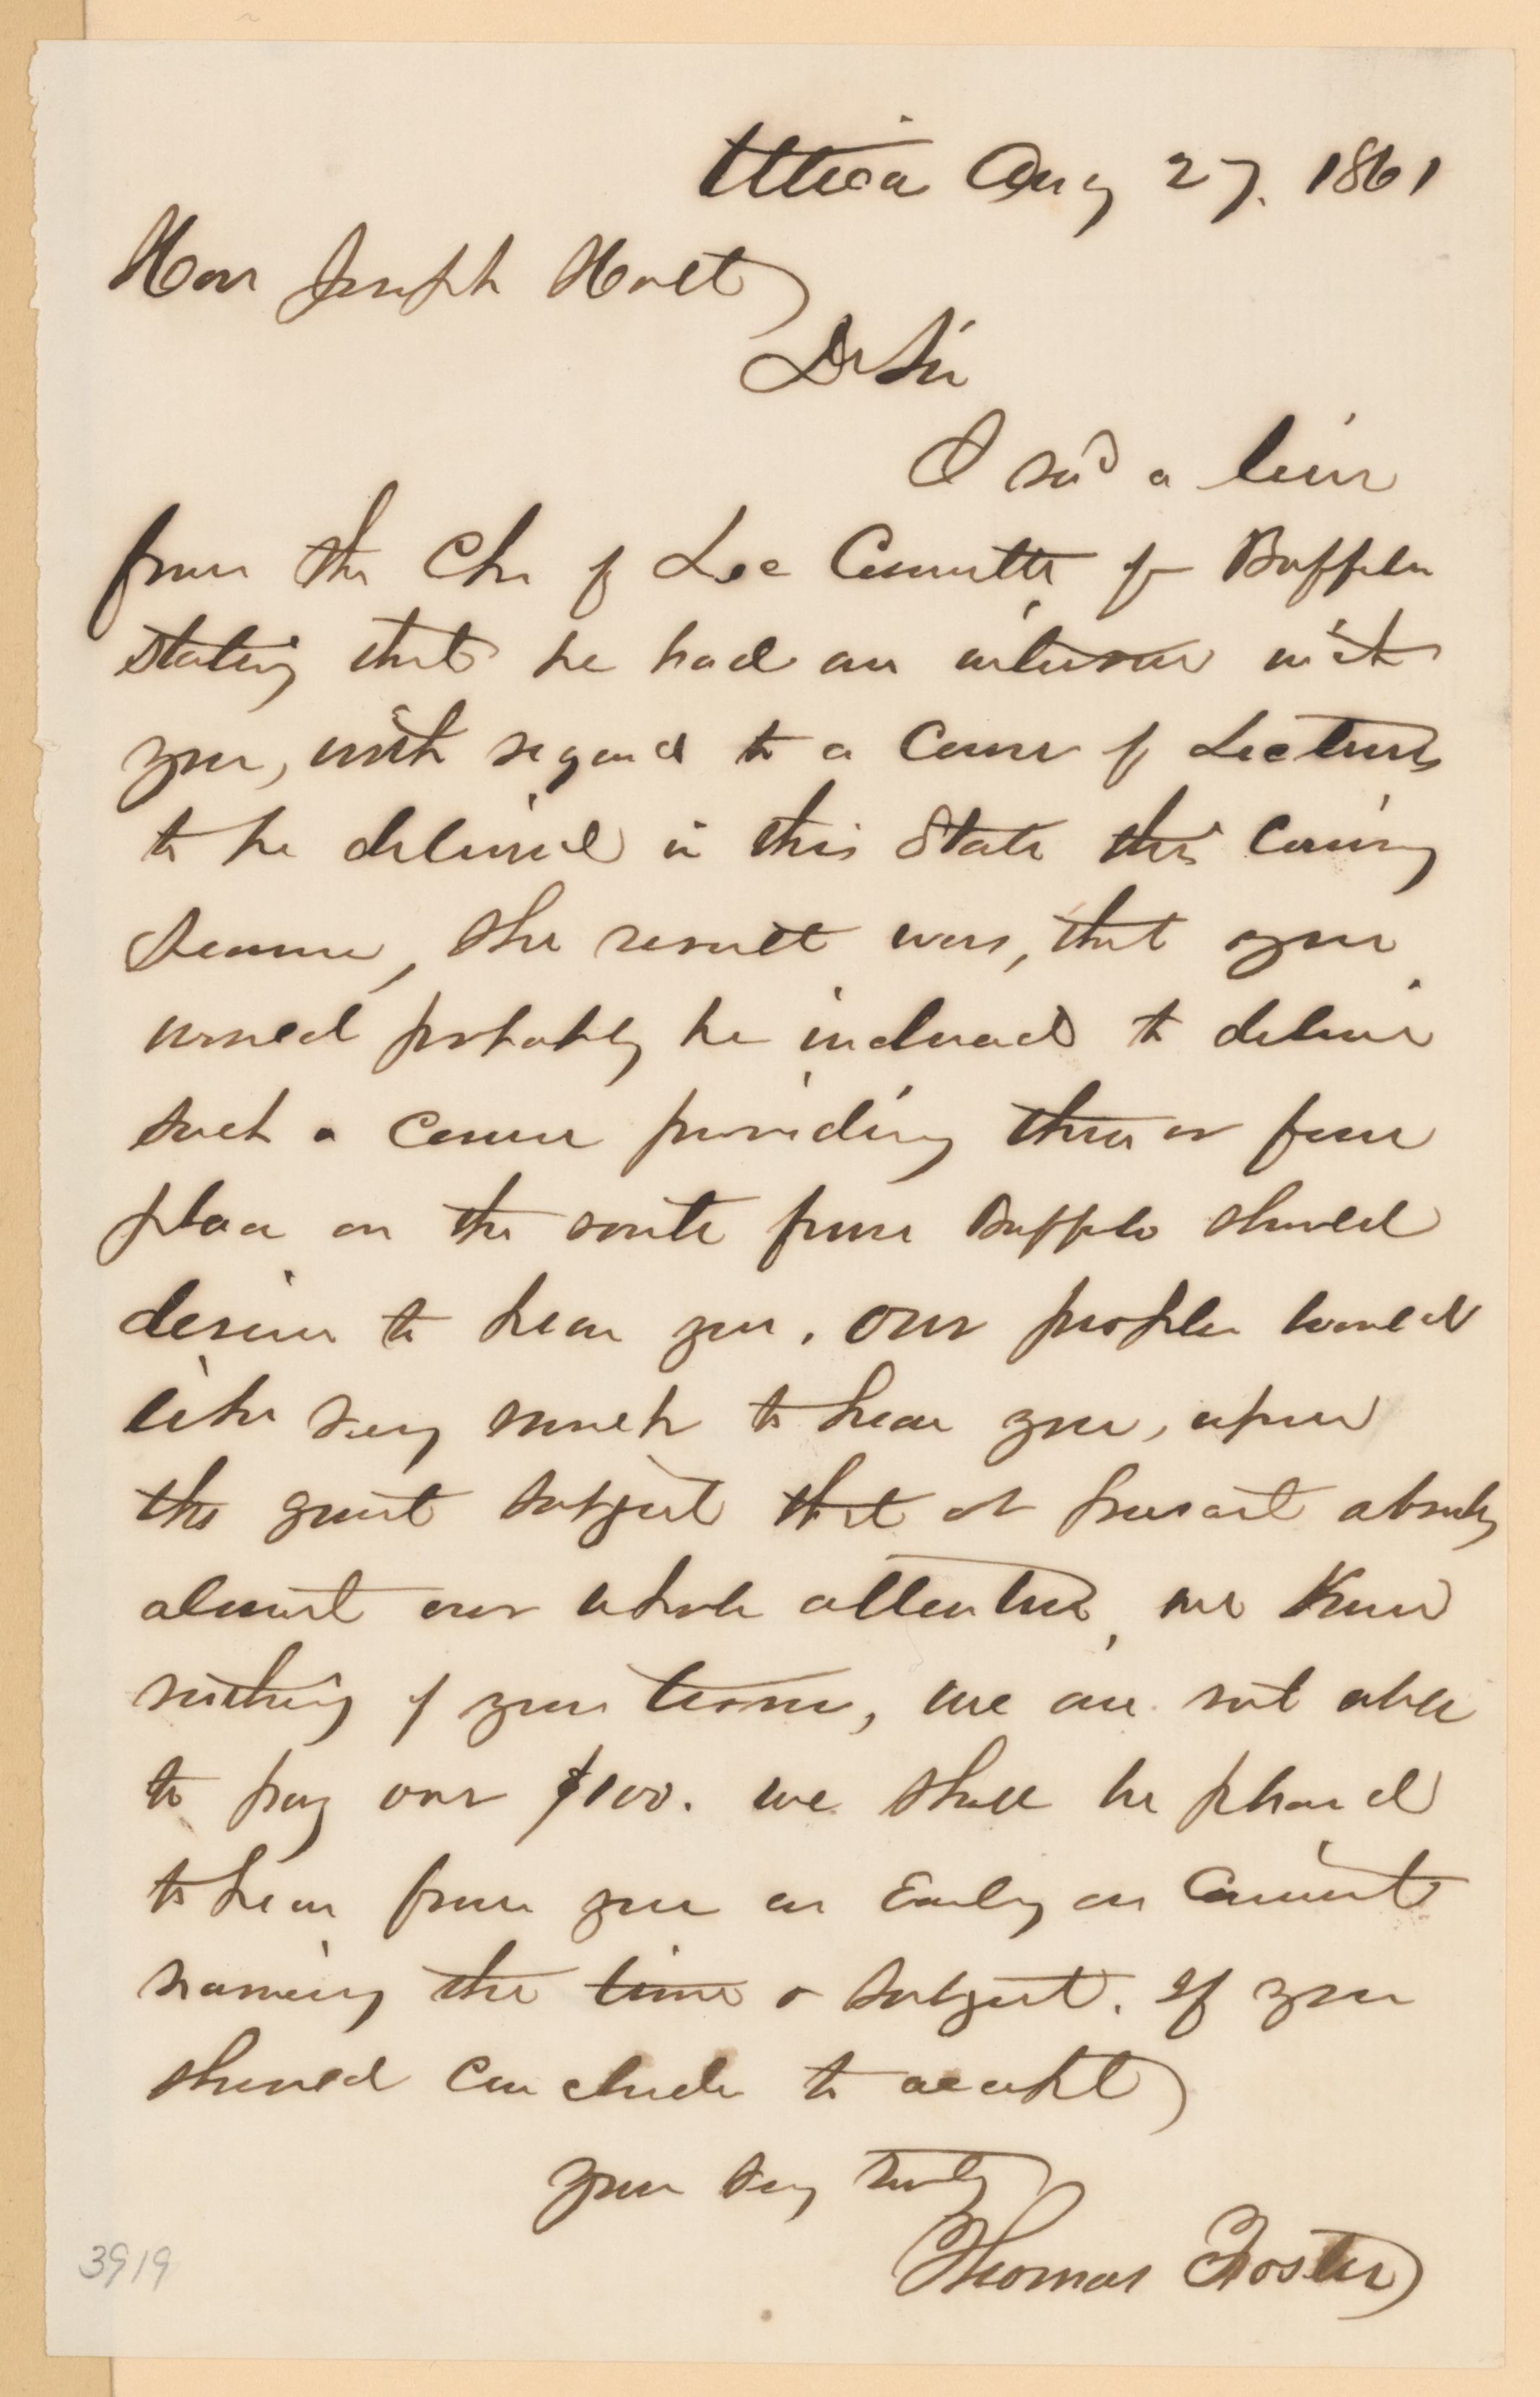 Utica Aug 27. 1861
Hon Joseph Holt
Dr Sir
I recd a line
from the Chr of Lec Committe of Buffalo
stating that he had an interview with
you, with regard to a Course of Lectures
to be delivered in this State this coming
season, the result was, that you
would probably be induced to deliver
such a course providing three or four
places on the route from Buffalo should
desire to hear you. Our people would
like very much to hear you, upon
the great subject that at present absorbs
almost our whole attention, we know
nothing of your terms, we are not able
to pay over $100. we shall be pleased
to hear from you as Early as Convenient
naming the time & subject. If you
should conclude to accept
your very truly
Thomas Foster
3919